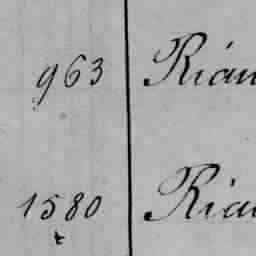 963 Rian
1580 Ria